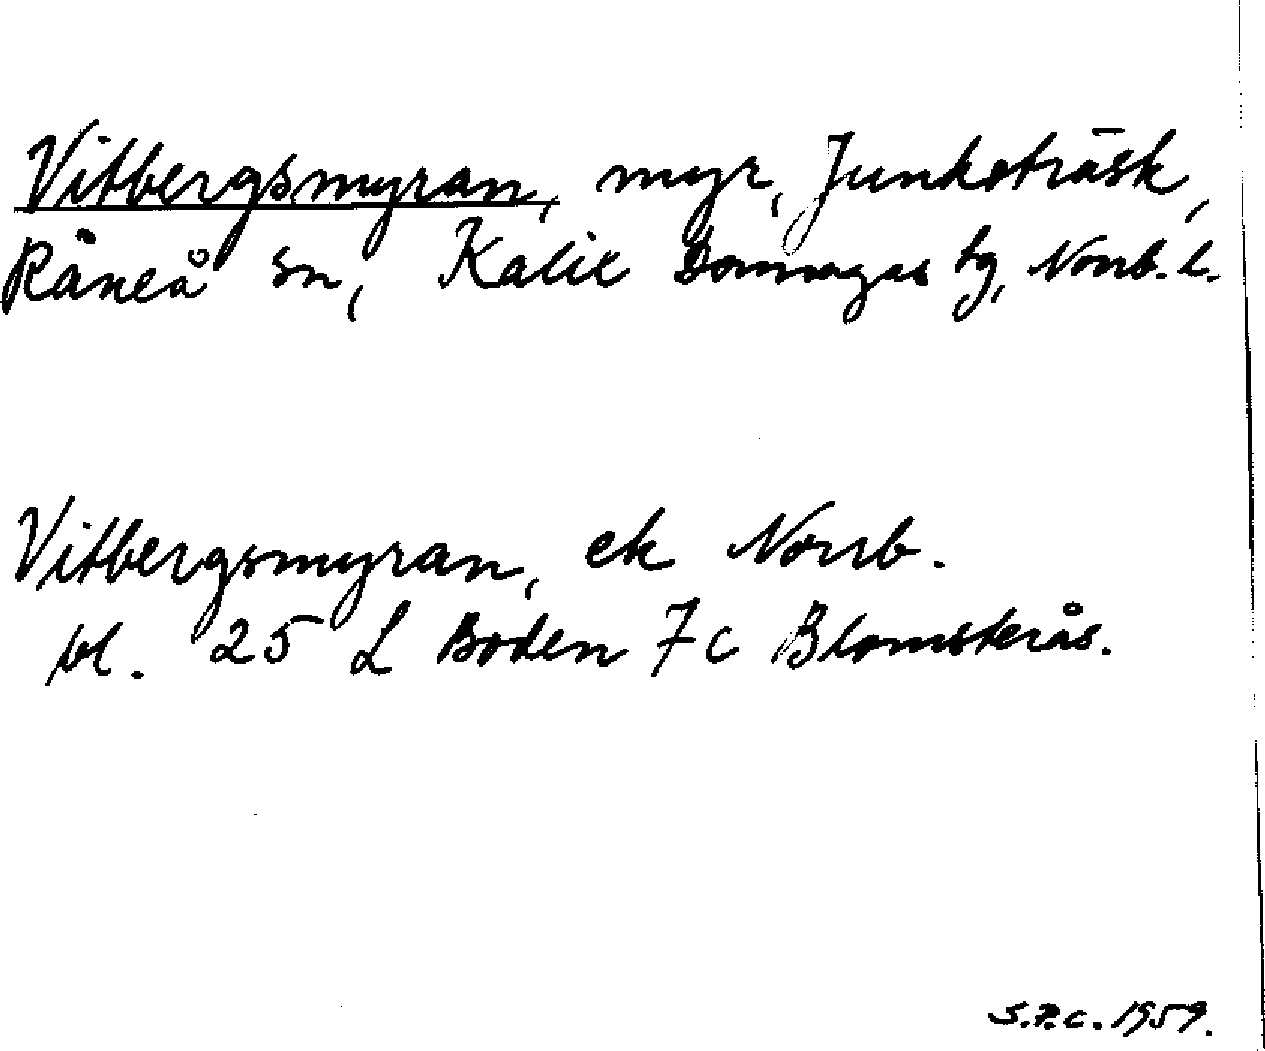 Vitbergsmyran, myr, Junketräsk,
Råneå sn, Kalix Domsagas tg, Norrb. l.
Vitbergsmyran, ek Norrb.
bl. 25 L Boden 7 c Blomsterås.
S.P.C. 1959.